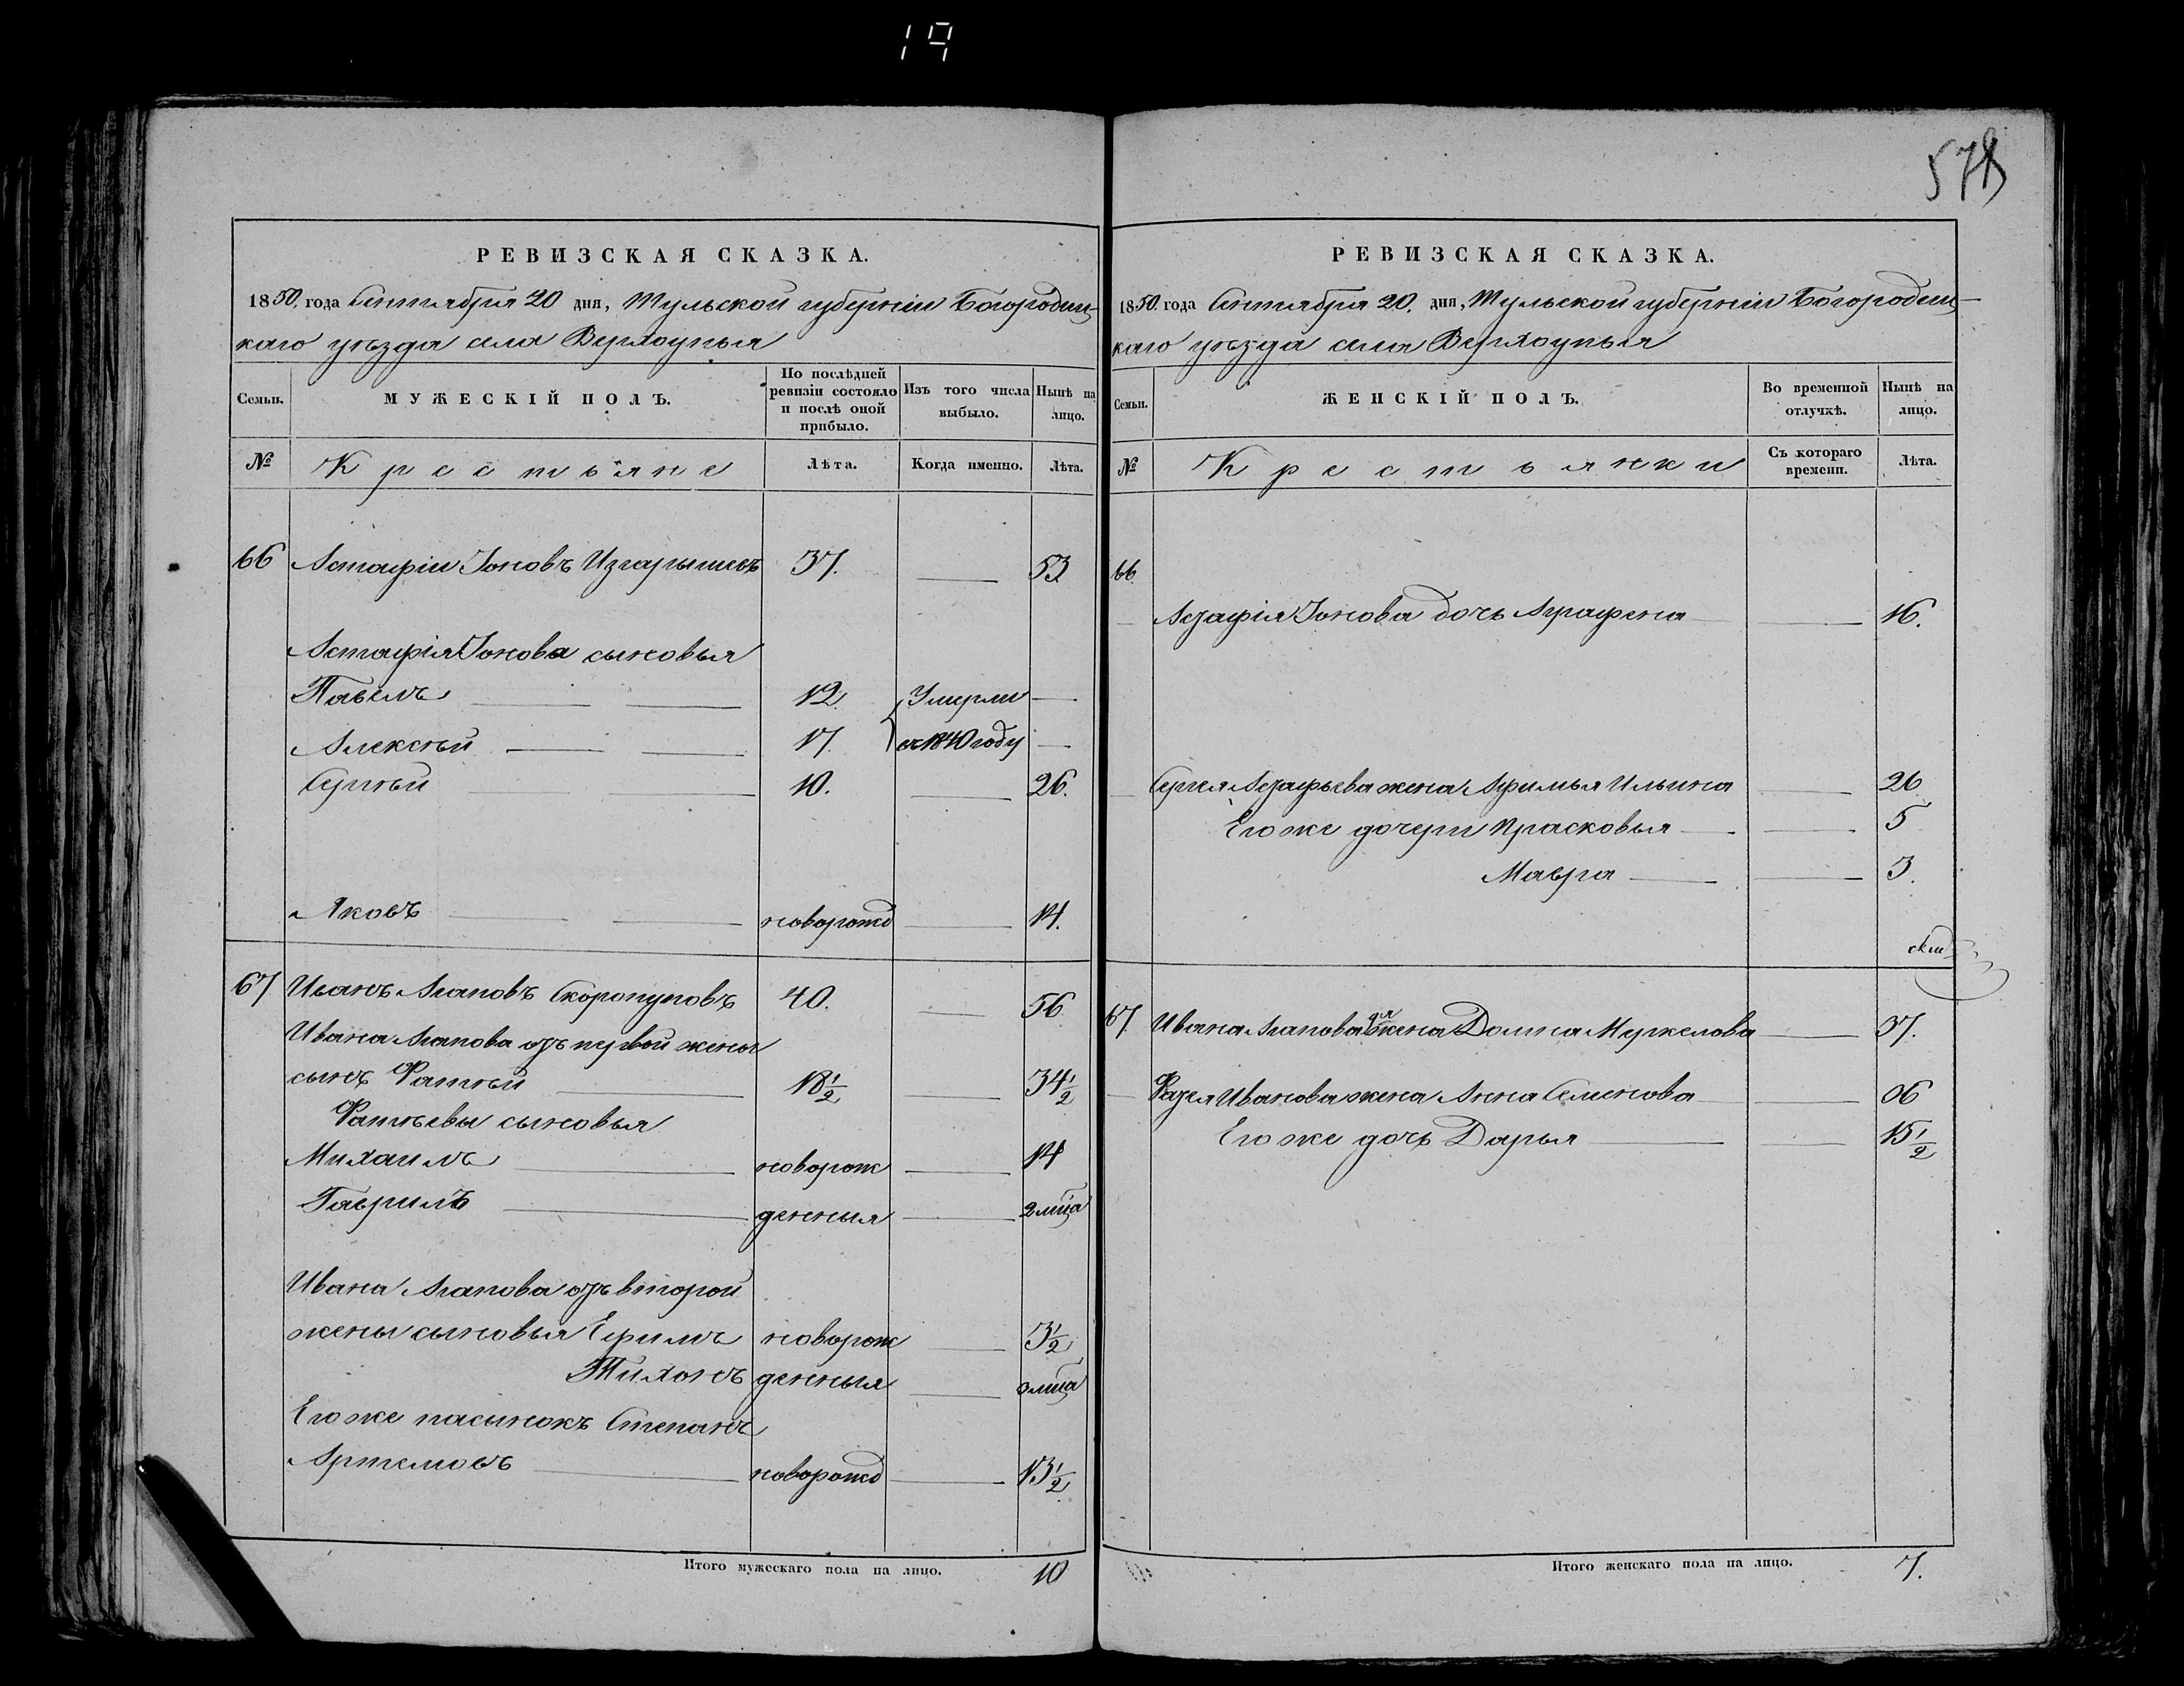 19
РЕВИЗСКАЯ СКАЗКА.
1850. года Сентября 20 дня, Тульской губерніи Богородиц-
каго уѣзда села Верхоупья
Семьи.
МУЖЕСКІЙ ПОЛЪ.
По послѣдней ревизіи состояло и послѣ оной прибыло.
Изъ того числа выбыло.
Нынѣ на лицо.
№
Крестьяне
Лѣта.
Когда именно.
Лѣта.
66 Астафіи Іоновъ 37. 53
Астафія Іонова сыновья
Павелъ 12 Умерли
Алексѣй 17. въ 1840 году
Сергѣй 10. 26.
Яковъ новорожд 14.
67 Иванъ Агаповъ Скоропуповъ 40. 56
Ивана Агапова отъ первой жены
сынъ Фатѣй 18½ 34½
Фатѣевы сыновья
Михаилъ новорож 14
Гаврилъ денныя 2 мца
Ивана Агапова отъ второй
жены сыновья Ефимъ новорож 3½
Тихонъ денныя 3 мца
Его же пасынокъ Степанъ
Артемовъ новорожд 13½
Итого мужескаго пола на лицо. 10
РЕВИЗСКАЯ СКАЗКА.
1850. года Сентября 20. дня, Тульской губерніи Богородиц-
каго уѣзда села Верхоупья
Семьи.
ЖЕНСКІЙ ПОЛЪ.
Во временной отлучкѣ.
Нынѣ на лицо.
№
Крестьянки
Съ котораго времени.
Лѣта.
66
Астафія Іонова дочь Аграфена 16.
Сергея Астафьева жена Афимья Ильина 26
Его же дочери Прасковья 5
Мавра 3.
67 Ивана Агапова 2я жена Домна Меркелова 37.
Фатея Иванова жена Анна Семенова 36
Его же дочь Дарья 15½
Итого женскаго пола на лицо. 7.